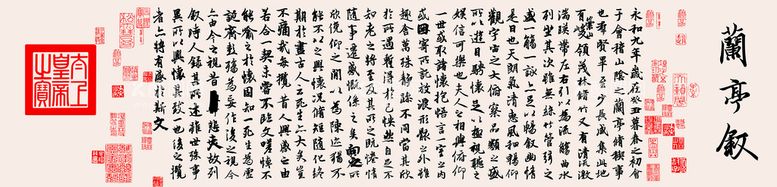 蘭亭叙
永和九年歲在癸丑暮春之初會
于會稽山陰之蘭亭脩稧事
也羣賢畢至少長咸集此地
有崇山峻領茂林脩竹又有清流激
湍暎帶左右引以為流觴曲水
列坐其次雖無絲竹管弦之
盛一觴一詠亦足以暢叙幽情
是日也天朗氣清惠風和暢仰
觀宇宙之大俯察品類之盛
所以遊目騁懷足以極視聽之
娛信可樂也夫人之相與俯仰
一世或取諸懷抱悟言一室之內
或因寄所託放浪形骸之外雖
趣舍萬殊靜躁不同當其欣
於所遇暫得於己怏然自足不
知老之將至及其所之既惓情
隨事遷感慨係之矣向之所
欣俛仰之間以為陳迹猶不
能不以之興懷況脩短隨化終
期於盡古人云死生亦大矣豈
不痛哉每攬昔人興感之由
若合一契未嘗不臨文嗟悼不
能喻之於懷固知一死生為虛
誕齊彭殤為妄作後之視今
亦由今之視昔悲夫故列
叙時人錄其所述雖世殊事
異所以興懷其致一也後之攬
者亦將有感於斯文
太上
皇帝
之寶